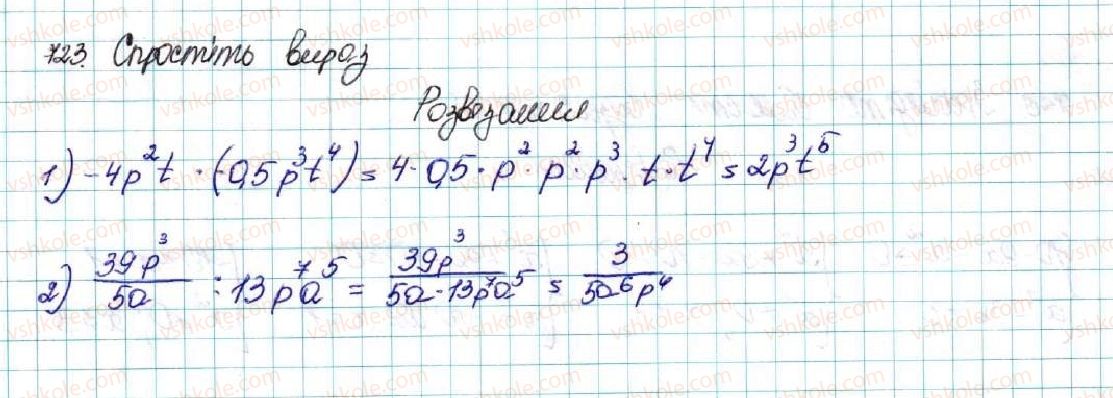 723. Спростіть вираз
Розвезання
1) -4p²t · (-0,5p³t⁴) = 4·0,5·p²·p²·p³·t·t⁴ = 2p³t⁵
2) 39p³/5a : 13p⁷a⁵ = 39p³/5a·13p⁷a⁵ = 3/5a⁶p⁴